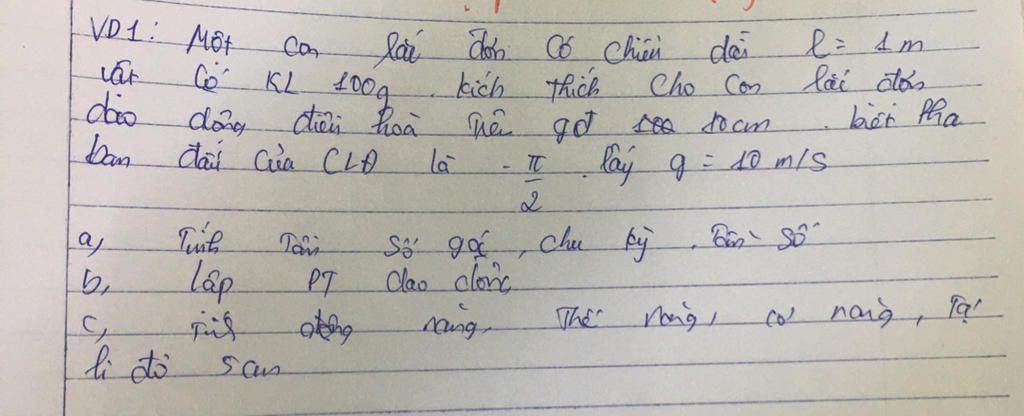 VD1: Một con lắc đơn có chiều dài l = 1 m
vật có KL 100g. kích thích cho con lắc đơn
dao động điều hoà trên qđ 10cm. biết pha
ban đầu của CLĐ là -π/2. lấy g = 10 m/s
a, Tính Tần số góc, chu kỳ, tần số
b, lập PT dao động
c, Tính động năng, Thế năng, cơ năng, Tại
li độ 5cm